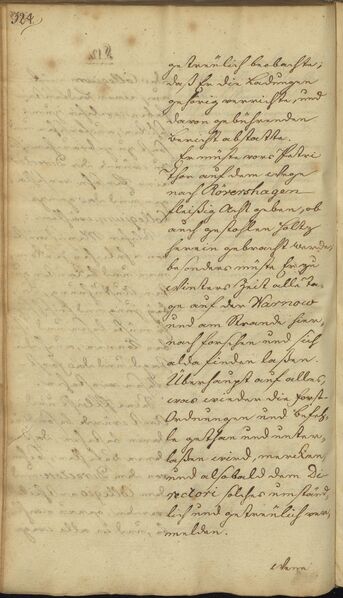 324
getreülich beobachte;
daß Er die Ladungen
gehörig verrichte, und
davon gebührenden
Bericht abstatte.
Er müste vors Petri
Thor auf dem Wege
nach Rövershagen
fleißig Acht geben, ob
auch gestohlen Holtz
herein gebracht werde,
besonders müste Er zu
Winters Zeit alle Ta-
ge auf der Warnow
und am Strande hier-
nach forschen und sich
alda finden laßen.
Überhaupt auf alles,
was wieder die Forst-
Ordnungen und Befeh-
le gethan und unter-
laßen wird, mercken,
und alsobald dem Di-
rectori solches umständ-
lich und getreülich ver-
melden.